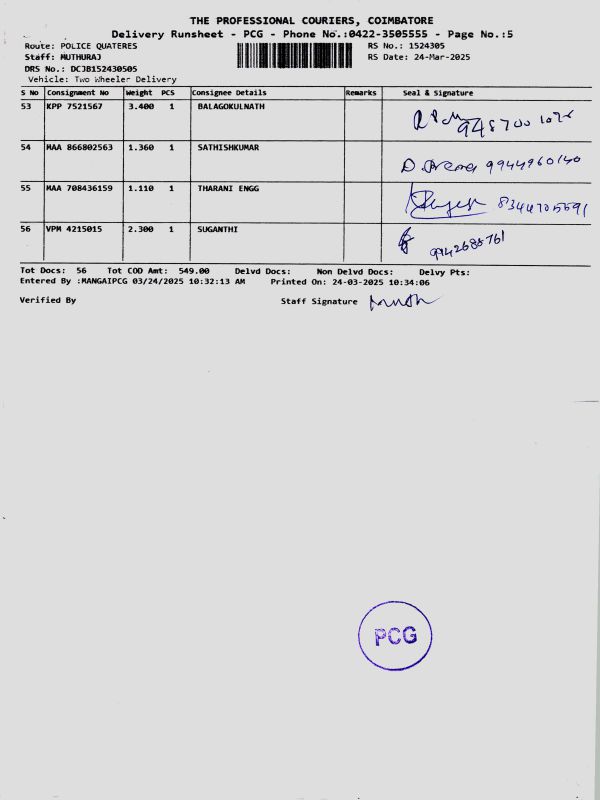 THE PROFESSIONAL COURIERS, COIMBATORE
Delivery Runsheet - PCG - Phone No.:0422-3505555 - Page No.:5
Route: POLICE QUATERES RS No.: 1524305
Staff: MUTHURAJ RS Date: 24-Mar-2025
DRS No.: DCJB152430505
Vehicle: Two Wheeler Delivery
S No Consignment No Weight PCS Consignee Details Remarks Seal & Signature
53 KPP 7521567 3.400 1 BALAGOKULNATH
54 MAA 866802563 1.360 1 SATHISHKUMAR 9944960140
55 MAA 708436159 1.110 1 THARANI ENGG 8344705591
56 VPM 4215015 2.300 1 SUGANTHI 9942685761
Tot Docs: 56 Tot COD Amt: 549.00 Delvd Docs: Non Delvd Docs: Delvy Pts:
Entered By :MANGAIPCG 03/24/2025 10:32:13 AM Printed On: 24-03-2025 10:34:06
Verified By Staff Signature
PCG